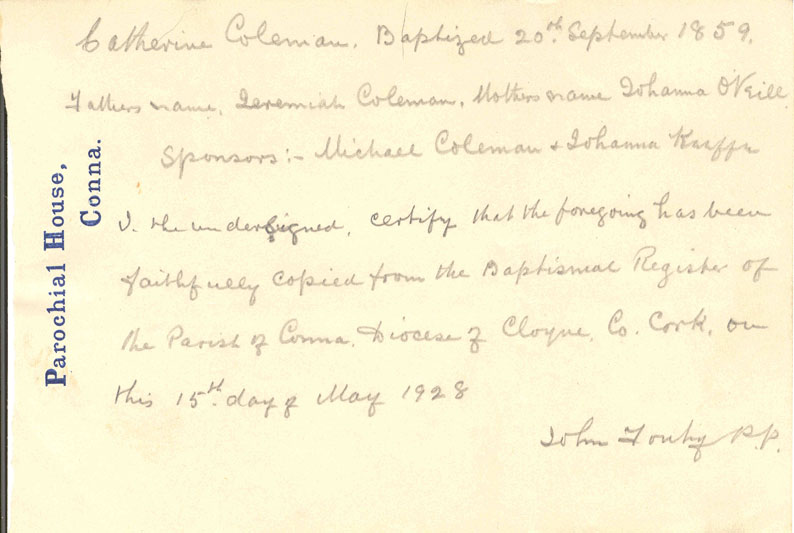 Parochial House,
Conna.
Catherine Coleman. Baptized 20th September 1859.
Fathers name, Jeremiah Coleman. Mothers name Johanna O'Neill
Sponsors:- Michael Coleman & Johanna
I. the undersigned, certify that the foregoing has been
faithfully copied from the Baptismal Register of
the Parish of Conna. Diocese of Cloyne. Co. Cork, on
this 15th day of May 1928
John P.P.